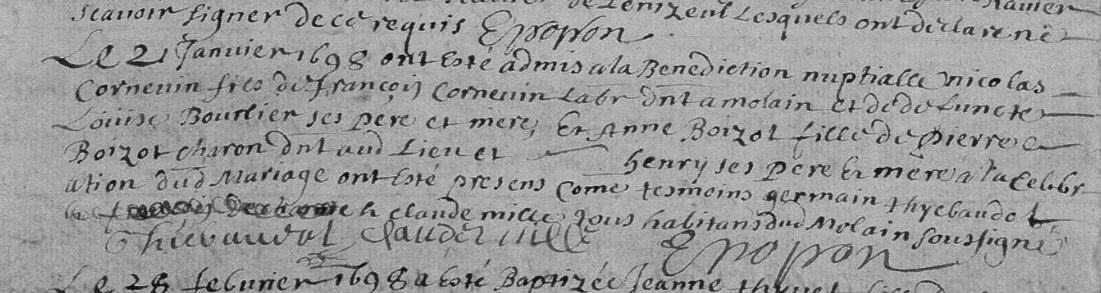 scavoir signer de ce requis Epopon lesquels ont declare ne
Le 21 Janvier 1698 ont esté admis a la Benediction nuptialle nicolas
Cornevin fils de françois Cornevin labr dnt a molain et de defuncte
Louise Bourlier ses pere et mere, Et Anne Boizot fille de pierre
Boizot charon dnt aud Lieu et henry ses pere Et mere a la Celebr
ation dud Mariage ont esté presens Come tesmoins germain thyebaudot
et claude mille tous habitans dud Molain soussignés
Thiebaudot Claude mille Epopon
Le 28 feburier 1698 a esté Baptizée Jeanne